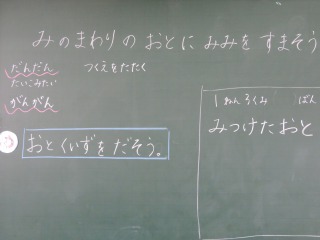 みのまわりの おとに みみを すまそう
だんだん つくえをたたく
たいこみたい
がんがん
おとくいずを だそう。
1ねんろくみ ばん
みつけたおと